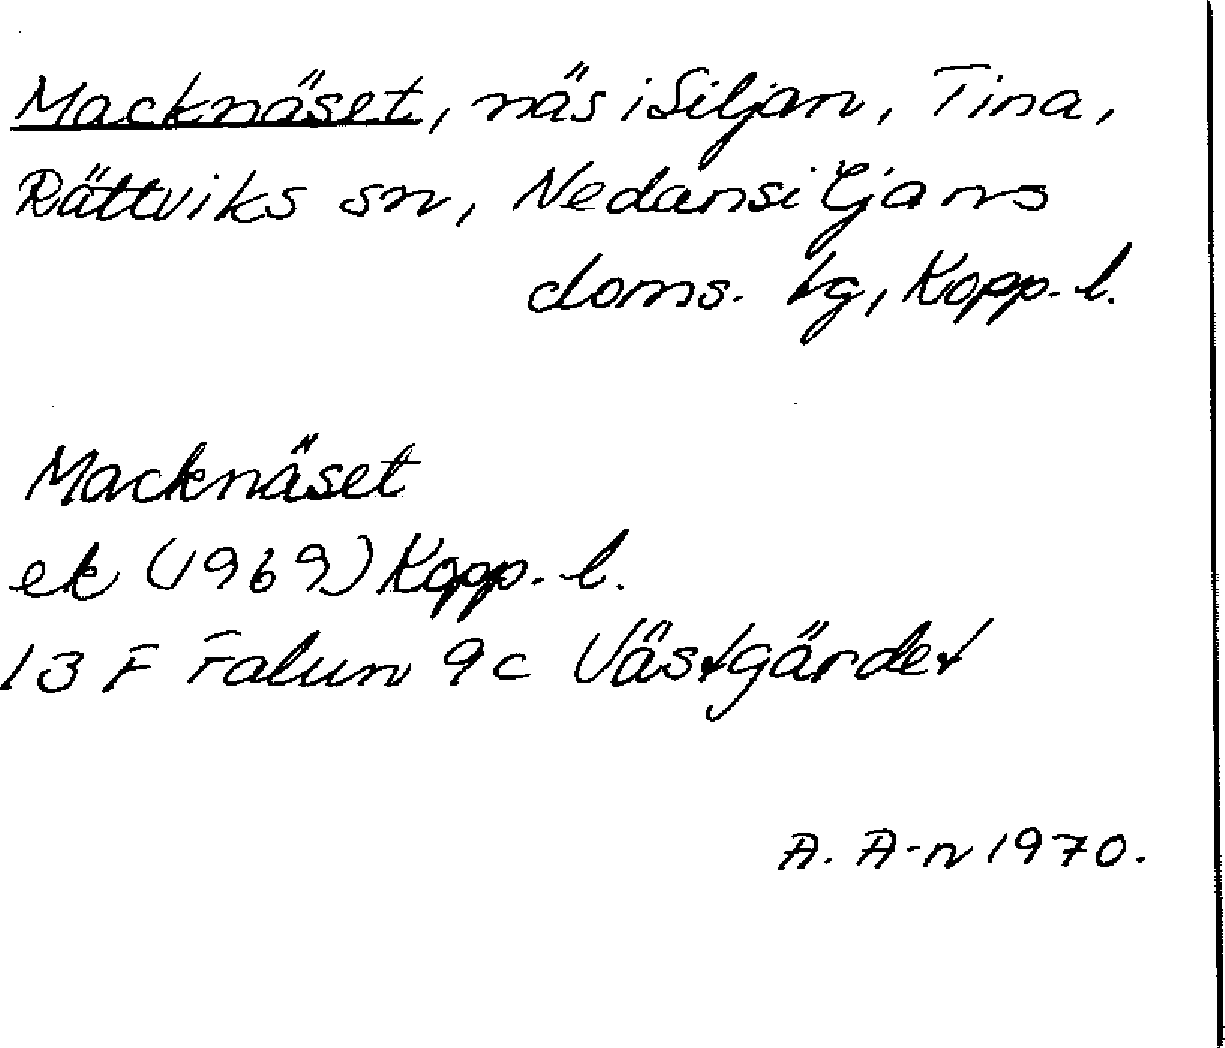 Macknäset, näs i Siljan, Tina,
Rättviks sn, Nedansiljans
doms. tg, Kopp. l.
Macknäset
ek (1969) Kopp. l.
13 F Falun 9c Västgärdet
A. A-n 1970.